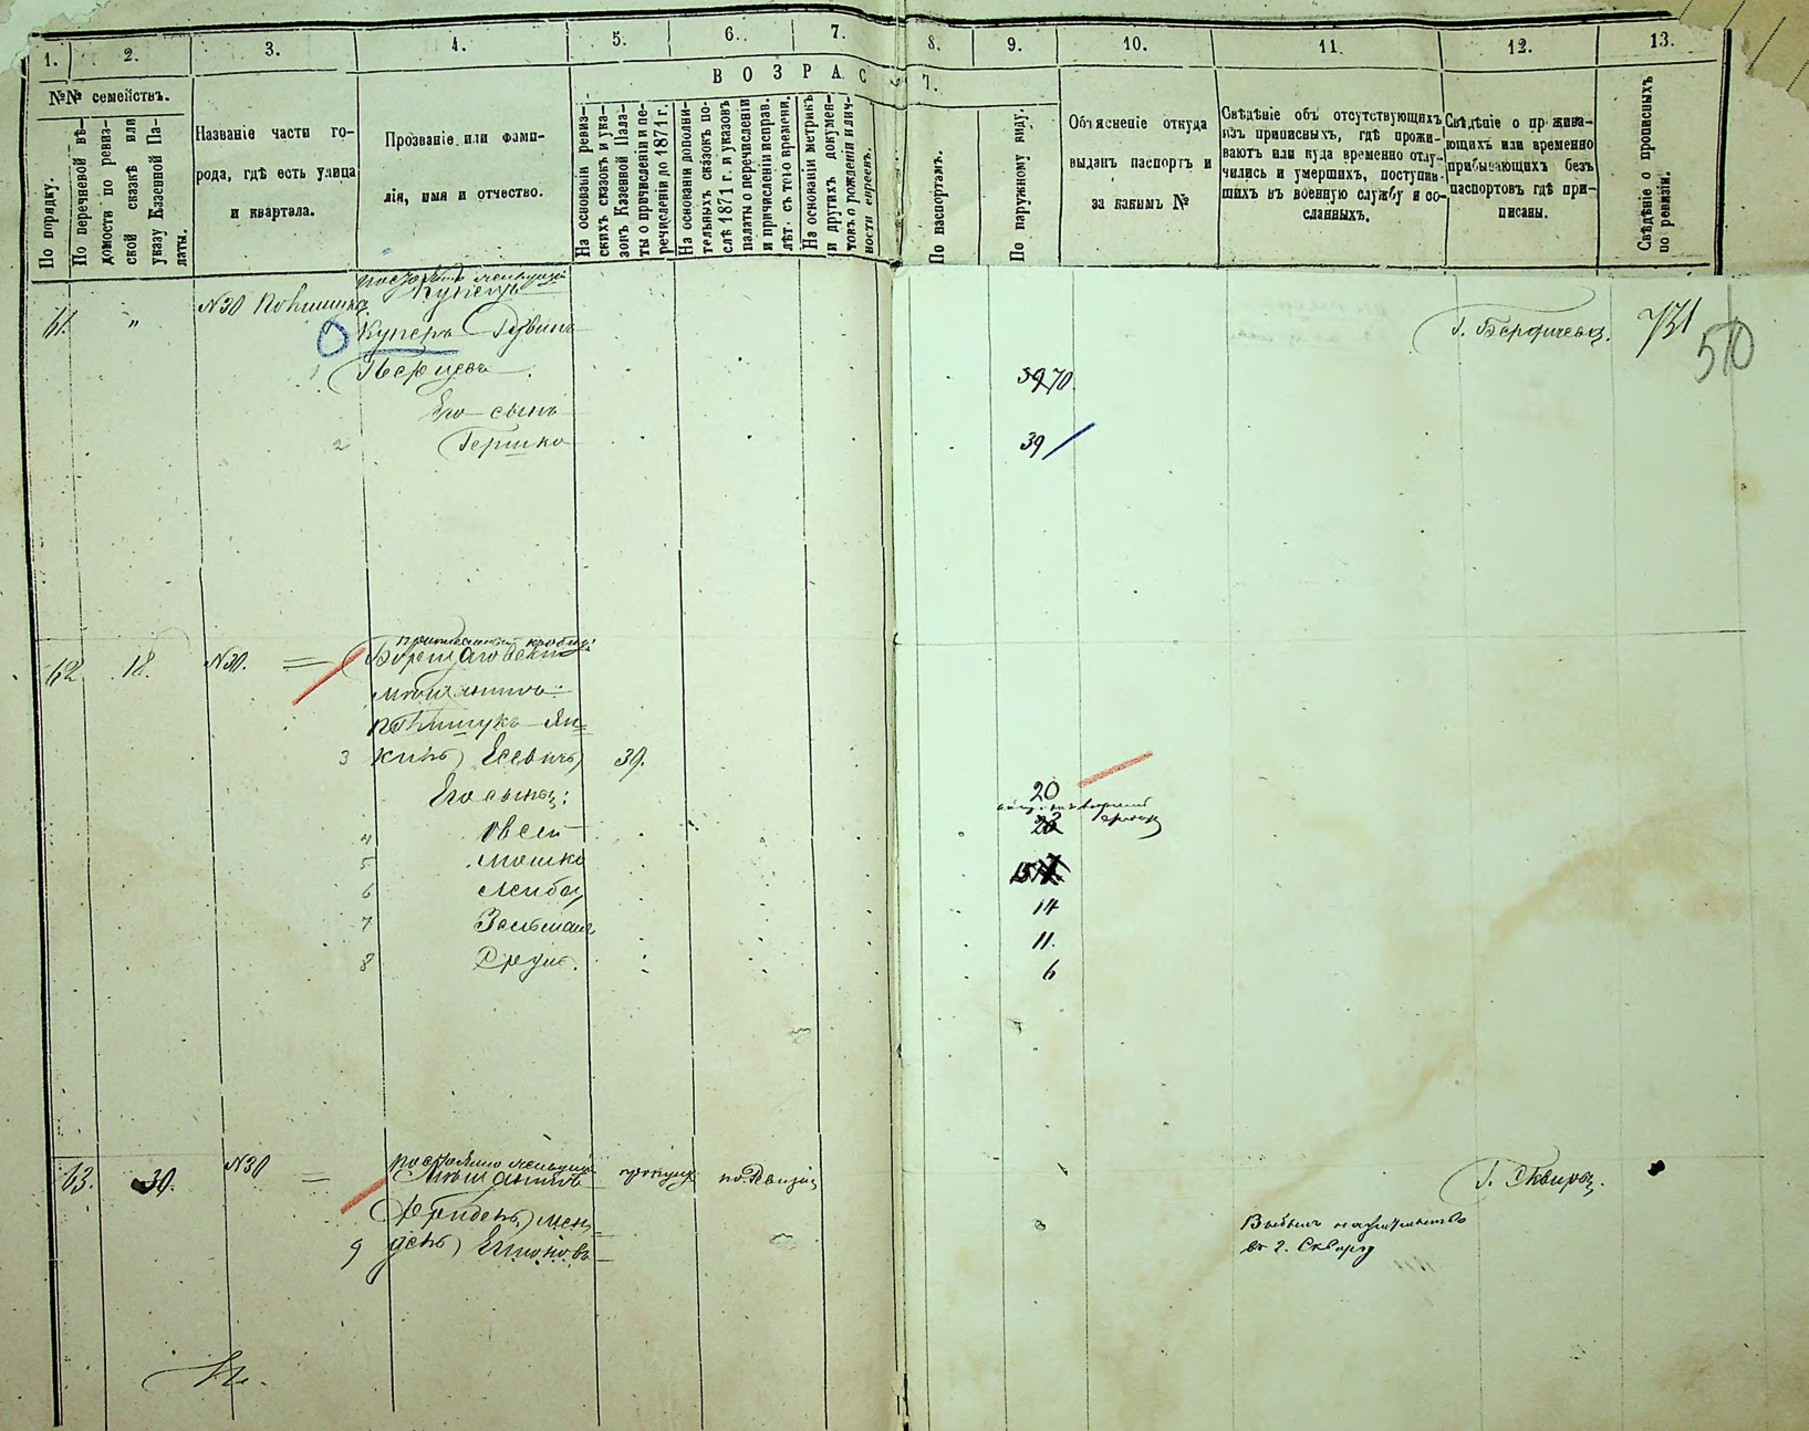 1. 2. 3. 4. 5. 6. 7. 8. 9. 10. 11. 12. 13.
ВОЗРАС Т.
№№ семействъ.
По порядку.
По перечневой вѣ-
домости по ревиз-
ской сказкѣ или
указу Казенной Па-
латы.
Названіе части го-
рода, гдѣ есть улица
и квартала.
Прозваніе или фами-
лія, имя и отчество.
На основаніи ревиз-
скихъ сказокъ и ука-
зокъ Казенной Пала-
ты о причисленіи и пе-
речисленіи до 1871 г.
На основаніи дополни-
тельныхъ сказокъ по-
слѣ 1871 г. и указовъ
палаты о перечисленіи
и причисленіи исправ.
лѣт. съ того времени.
На основаніи метрикъ
и другихъ докумен-
товъ о рожденіи и лич-
ности евреевъ.
По паспортамъ.
По наружному виду.
Объясненіе откуда
выданъ паспортъ и
за какимъ №
Свѣдѣніе объ отсутствующихъ
изъ приписныхъ, гдѣ прожи-
ваютъ или куда временно отлу-
чились и умершихъ, поступив-
шихъ въ военную службу и со-
сланныхъ.
Свѣдѣніе о прожива-
ющихъ или временно
прибывающихъ безъ
паспортовъ гдѣ при-
писаны.
Свѣдѣніе о прописныхъ
по ревизіи.
61. " №30 Полищука
Купецъ
Куперъ Рувинъ Г. Бердичева. 731 510
1 Перцевъ 59 70
Его сынъ
2 Гершко 39
62 18. №30. =
Борщаговскій
мѣщанинъ:
Полищукъ Ян=
3 кель Есевичъ 39.
Его сыны: 20
4 Овсей
5 Мошко 15
6 Лейба 14
7 Зельман 11.
8 Сруль. 6
63. 30. №30 =
постоянно живущій
Мѣщанинъ по Ревизіи Г. Сквиры.
Фрѣйденъ, Мен-
9 дель Шмоновъ
Выбылъ на жительство
въ г. Сквиру